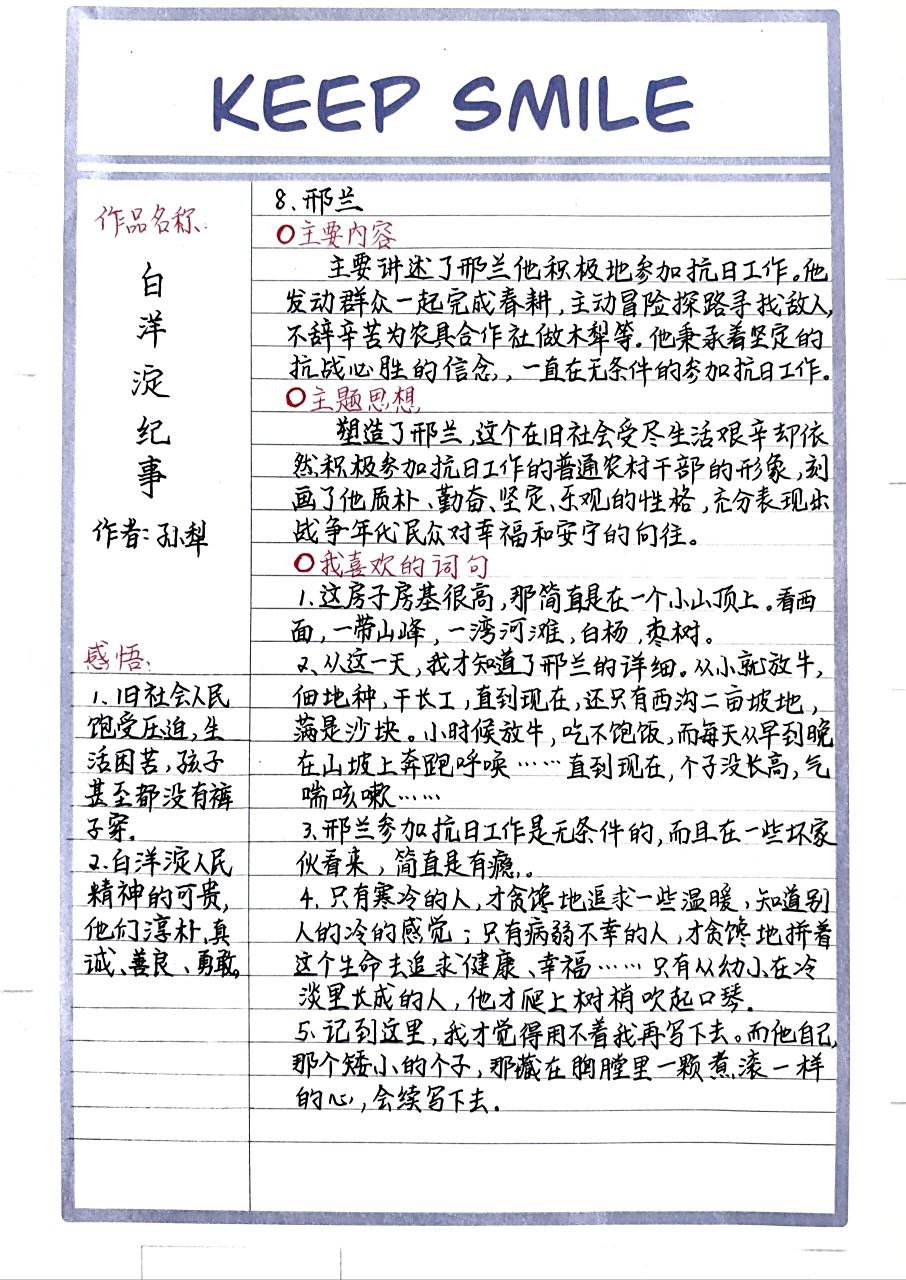 KEEP SMILE
作品名称:
白
洋
淀
纪
事
作者:孙犁
感悟:
1、旧社会人民
饱受压迫,生
活困苦,孩子
甚至都没有裤
子穿。
2、白洋淀人民
精神的可贵,
他们淳朴、真
诚、善良、勇敢。
8、邢兰
○主要内容
主要讲述了邢兰他积极地参加抗日工作。他
发动群众一起完成春耕,主动冒险探路寻找敌人,
不辞辛苦为农具合作社做木犁等。他秉承着坚定的
抗战必胜的信念,,一直在无条件的参加抗日工作。
○主题思想
塑造了邢兰,这个在旧社会受尽生活艰辛却依
然积极参加抗日工作的普通农村干部的形象,刻
画了他质朴、勤奋、坚定、乐观的性格,充分表现出
战争年代民众对幸福和安宁的向往。
○我喜欢的词句
1、这房子房基很高,那简直是在一个小山顶上。看西
面,一带山峰,一湾河滩,白杨,枣树。
2、从这一天,我才知道了邢兰的详细。从小就放牛,
佃地种,干长工,直到现在,还只有西沟二亩坡地,
满是沙块。小时候放牛,吃不饱饭,而每天从早到晚
在山坡上奔跑呼唤……直到现在,个子没长高,气
喘咳嗽……
3、邢兰参加抗日工作是无条件的,而且在一些坏家
伙看来,简直是有瘾。。
4、只有寒冷的人,才贪馋地追求一些温暖,知道别
人的冷的感觉;只有病弱不幸的人,才贪馋地拼着
这个生命去追求健康、幸福……只有从幼小在冷
淡里长成的人,他才爬上树梢吹起口琴。
5、记到这里,我才觉得用不着我再写下去。而他自己,
那个矮小的个子,那藏在胸膛里一颗煮滚一样
的心,会续写下去。